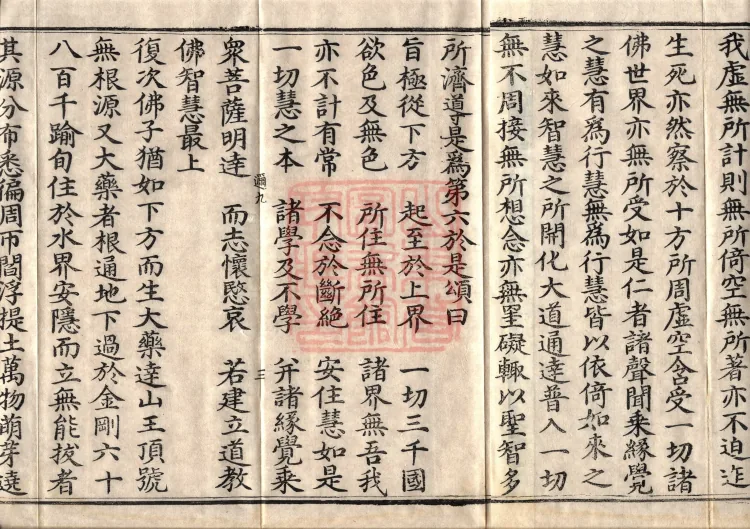 我虛無所計則無所倚空無所著亦不迫迮
生死亦然察於十方所周虛空含受一切諸
佛世界亦無所受如是仁者諸聲聞乘緣覺
之慧有爲行慧無爲行慧皆以依倚如來之
慧如來智慧之所開化大道通達普入一切
無不周接無所想念亦無罣礙輙以聖智多
所濟導是爲第六於是頌曰
旨極從下方 起至於上界 一切三千國
欲色及無色 所住無所住 諸界無吾我
亦不計有常 不念於斷絕 安住慧如是
一切慧之本 諸學及不學 幷諸緣覺乘
三
衆菩薩明達 而志懷愍哀 若建立道教
佛智慧最上
復次佛子猶如下方而生大藥達山王頂號
無根源又大藥者根通地下過於金剛六十
八百千踰旬住於水界安隱而立無能拔者
其源分布悉徧周帀閻浮提土萬物萌芽遶